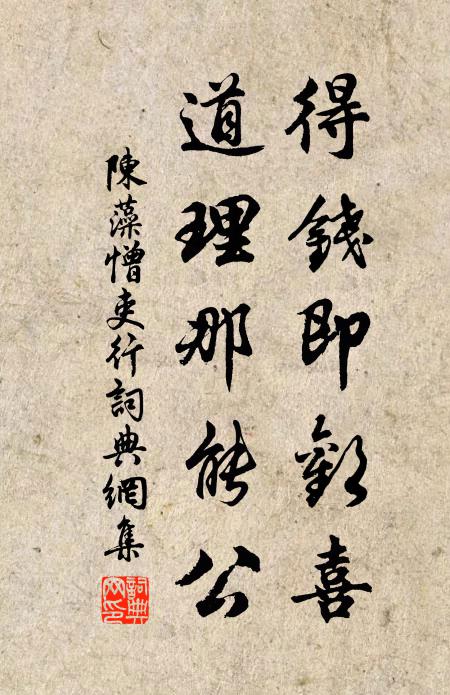 得錢即歡喜
道理那能公
陳藻憎吏行詞典網集
詞典網印